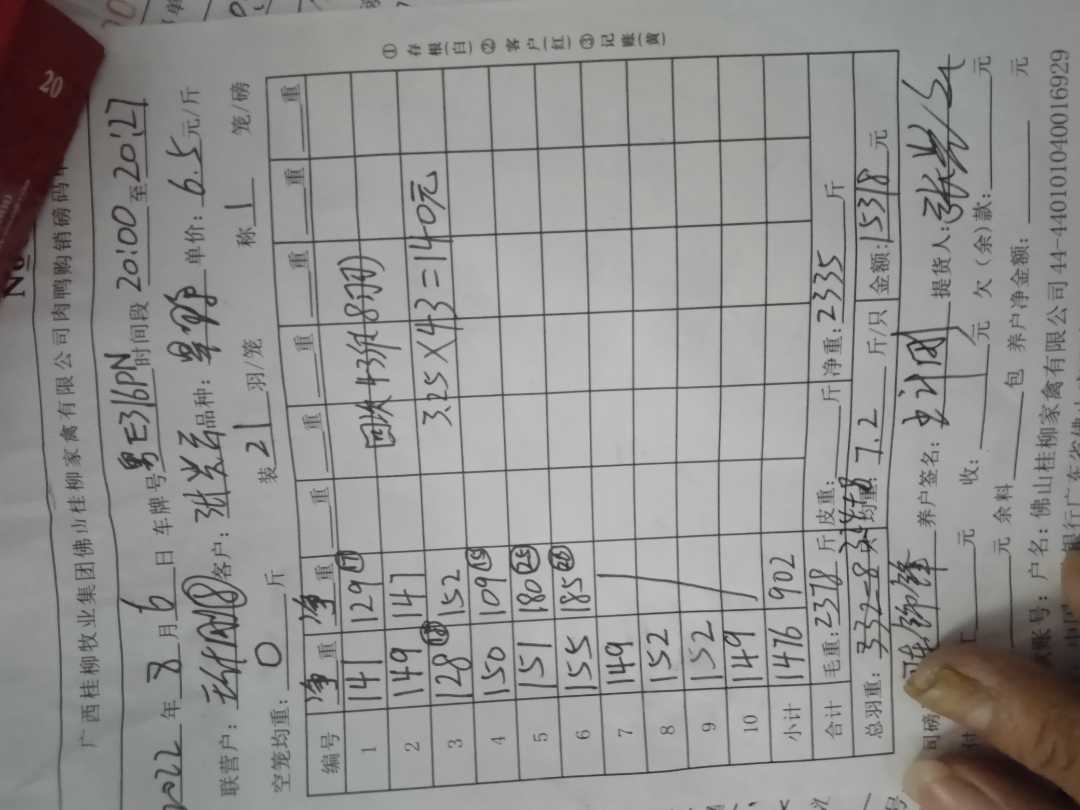 20
No
广西桂柳牧业集团佛山桂柳家禽有限公司肉鸭购销磅码单
2022年8月6日 车牌号粤E316PN 时间段20:00至20:21
联营户： 客户： 品种： 单价：6.5元/斤
空笼均重：0斤 装21羽/笼 称1笼/磅
编号 净重 净重 重 重 重 重 重 重
1 141 129⑰
2 149 147 回次43秤8羽
3 128⑱ 152 3.25×43=140元
4 150 109⑮
5 151 180㉕
6 155 185㉖
7 149
8 152
9 152
10 149
小计 1476 902
合计 毛重：2378斤 皮重：斤 净重：2335斤
总羽重：332-8 均重：7.2斤/只 金额：15318元
司磅 养户签名： 提货人：
付 元 收： 元 欠(余)款： 元
元 余料 包 养户净金额： 元
账号：户名：佛山桂柳家禽有限公司 44-440101040016929
中国 银行广东省佛山
①存根(白)②客户(红)③记账(黄)